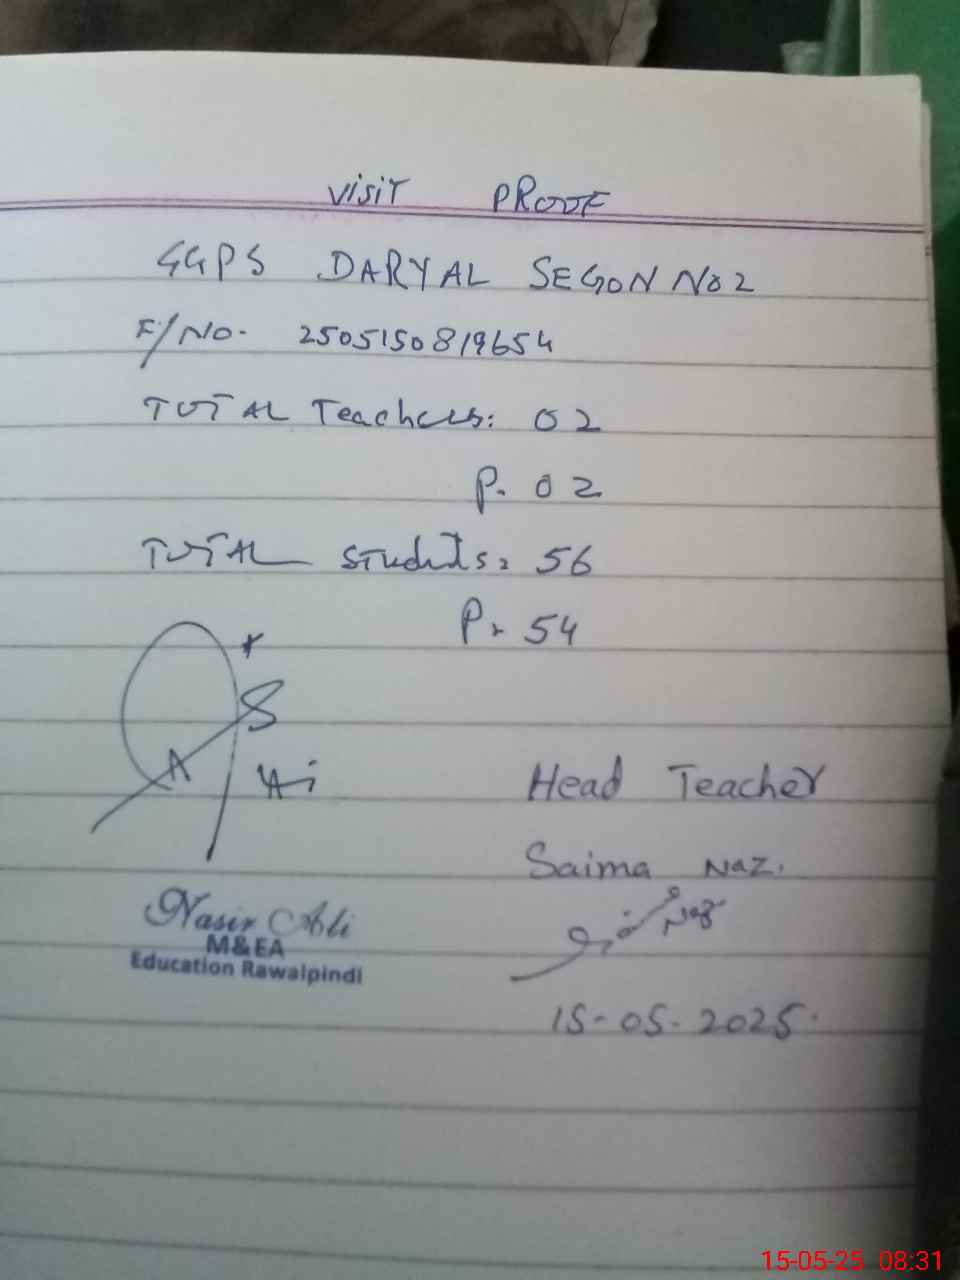 VISIT PROOF
GGPS DARYAL SEGON NO 2
F/NO. 2505150819654
TOTAL Teachers: 02
P. 02
TOTAL Students: 56
P. 54
Head Teacher
Saima Naz.
Naz
Nasir Ali
M&EA
Education Rawalpindi
15-05-2025.
15-05-25 08:31